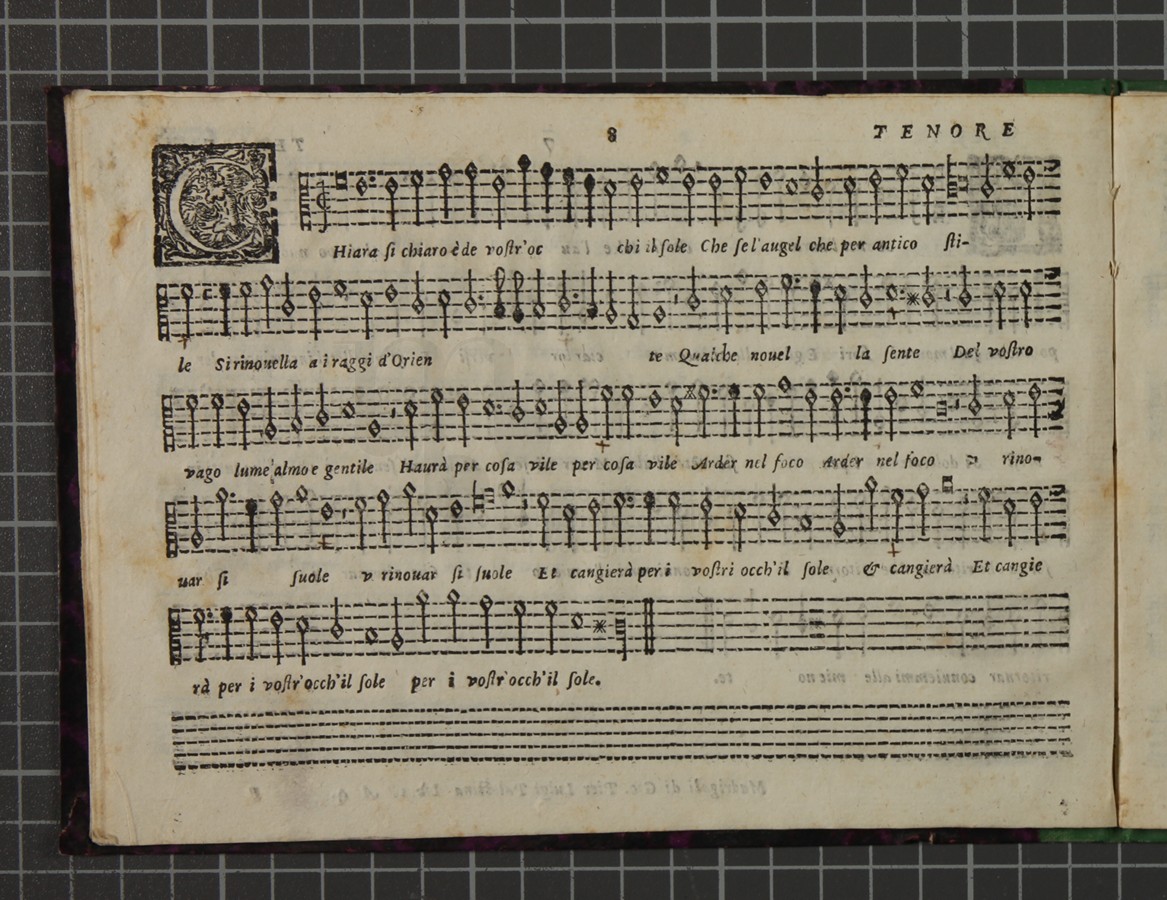 8 TENORE
CHiara ſi chiaro è de voſtr'oc chi il ſole Che ſe l'augel che per antico ſti-
le Si rinouella a i raggi d'Orien te Qualche nouel la ſente Del voſtro
vago lume almo e gentile Haurà per coſa vile per coſa vile Arder nel foco Arder nel foco rino-
uar ſi ſuole rinouar ſi ſuole Et cangierà per i voſtri occh'il ſole & cangierà Et cangie
rà per i voſtr'occh'il ſole per i voſtr'occh'il ſole.